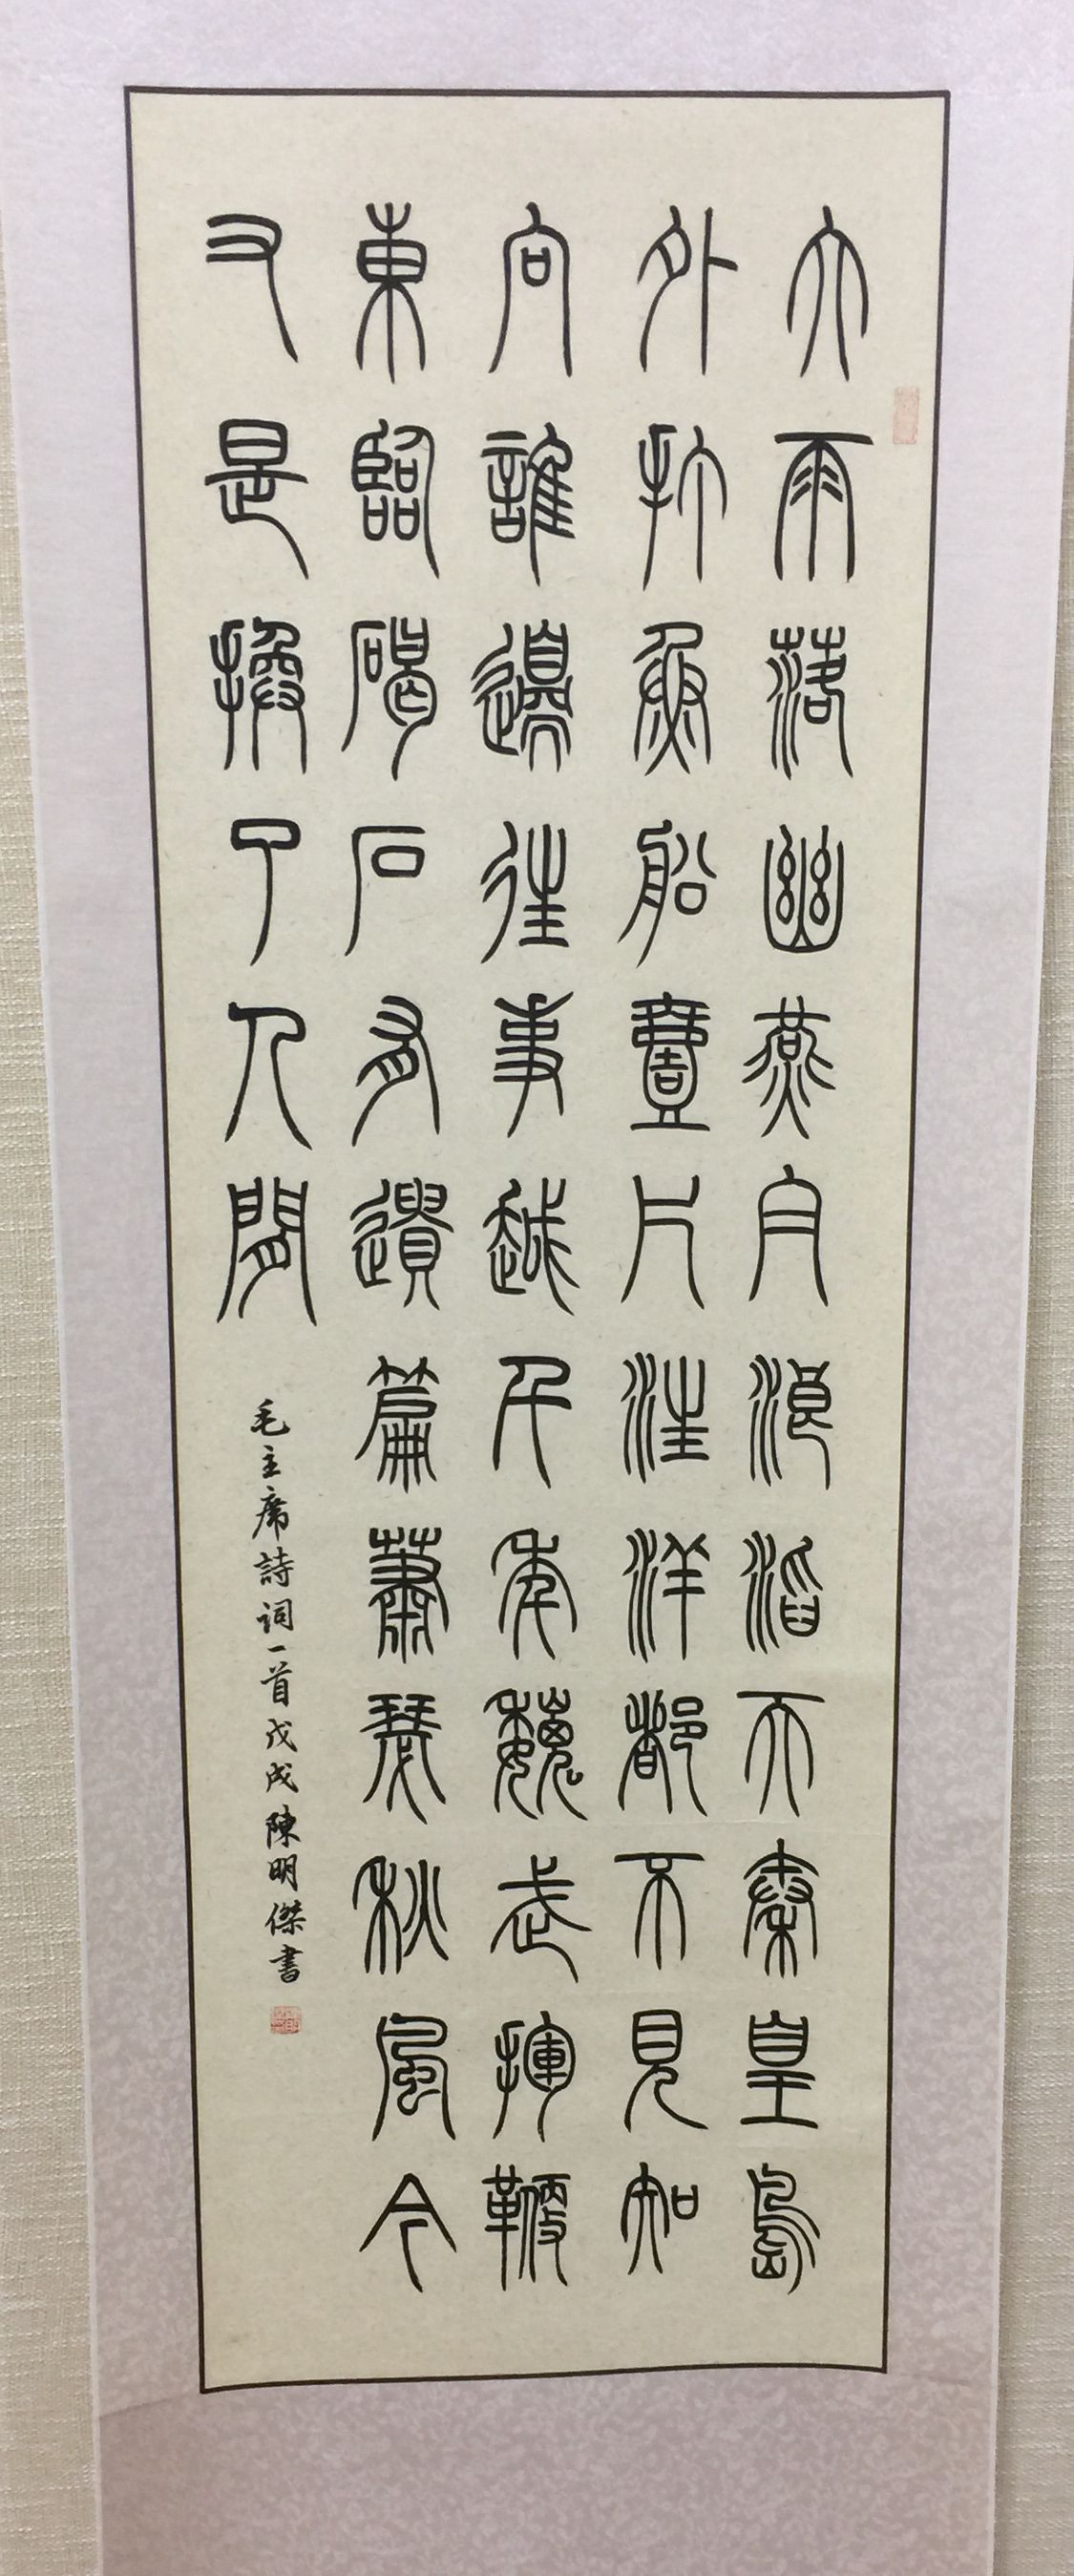 大雨落幽燕白浪滔天秦皇島
外打魚船壹片汪洋都不見知
向誰邊往事越千年魏武揮鞭
東臨碣石有遺篇蕭瑟秋風今
又是換了人間
毛主席詩词一首戊戌陳明傑書